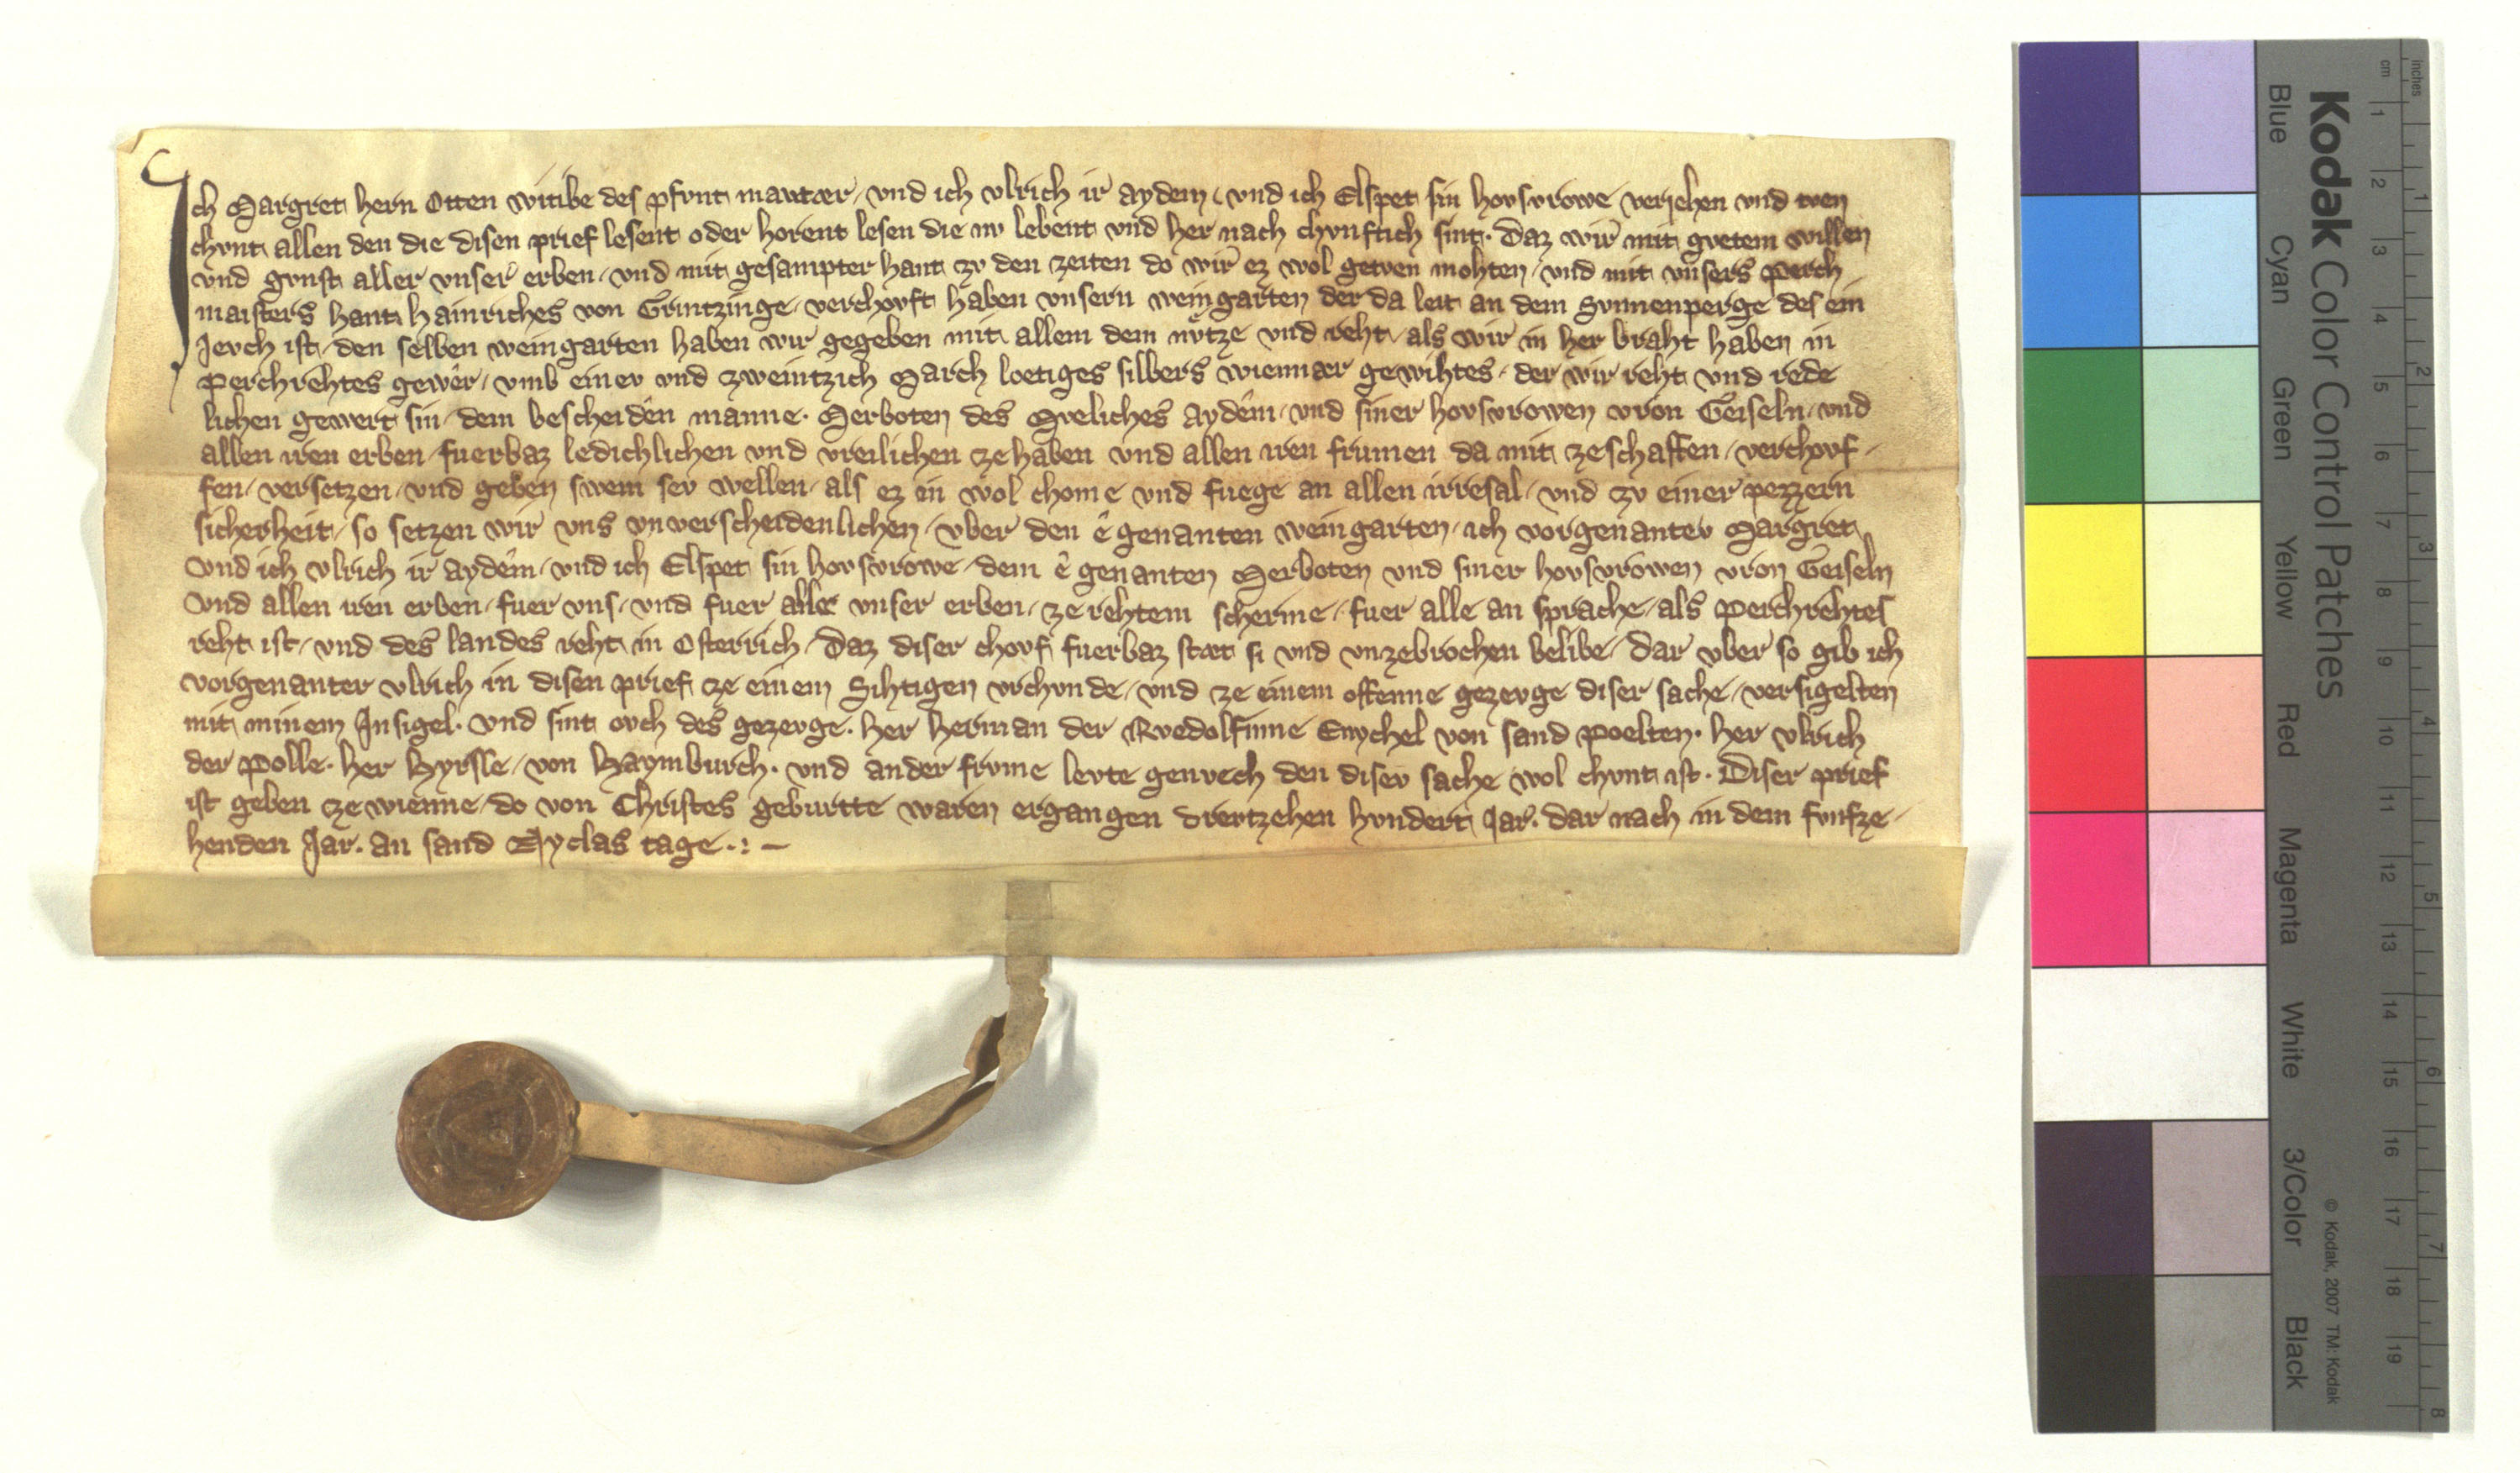 Ich Margret hern Otten witibe des pfvnt mautær / vnd ich vlrich ir aydem / vnd ich Elspet sin hovsvrowe / veriehen vnd tven
chvnt allen den die disen prief lesent oder horent lesen die nv lebent vnd her nach chvnftich sint. Daz wir mit gvetem willen
vnd gvnst aller vnser erben / vnd mit gesampter hant zv den zeiten do wir ez wol getven mohten / vnd mit vnsers perch
maisters hant hainriches von Grintzinge / verchovft haben vnsern weingarten der da leit an dem Svnnenperge des ein
Jevch ist / den selben weingarten haben wir gegeben mit allem dem nvtze vnd reht / als wir in her braht haben in
perchrehtes gewêr / vmb einev vnd zweintzich March loetiges silbers wiennær gewihtes / der wir reht vnd rede
lichen gewert sin / dem bescheidêN manne. Merboten des Mveliches aydêm / vnd siner hovsvrowen vron Geiseln / vnd
allen iren erben / fuerbaz ledichlichen vnd vreilichen ze haben vnd allen iren frumen da mit ze schaffen / verchovf /
fen / versetzen / vnd geben swem sev wellen / als ez in wol chome vnd fuege an allen irresal / vnd zv einer pezzern
sicherheit / so setzen wir vns vnverscheidenlichen / vber den ê genanten weingarten / ich vorgenantev Margret
vnd ich vlrich ir aydêm / vnd ich Elspet sin hovsvrowe / dem ê genanten Merboten vnd siner hovsvrowen vron Geiseln
vnd allen iren erben / fuer vns / vnd fuer alle vnser erben / ze rehtem scherme / fuer alle an sprache / als perchrehtes
reht ist / vnd des landes reht in Osterrich / Daz diser chovf fuerbaz stæt si vnd vnzebrochen belibe / dar vber so gib ich
vorgenanter vlrich in disen prief ze einem Sihtigen vrchvnde / vnd ze einem offenne gezevge diser sache / versigelten
mit minem Insigel. vnd sint ovch des gezevge. her herman der Rvedolfinne Enychel von sand poelten. her vlrich
der Polle. her Hyrsle / von Haymburch. vnd ander frvme levte genvech den disev sache wol chvnt ist. Diser prief
ist geben ze wienne / do von Christes geburtte waren ergangen drevtzehen hvndert Jar. dar nach in dem fvnfze /
henden Jar. an sand Nyclas tage . : –
Kodak Color Control Patches
© Kodak, 2007 TM: Kodak
Blue Cyan Green Yellow Red Magenta White 3/Color Black
cm 1 2 3 4 5 6 7 8 9 10 11 12 13 14 15 16 17 18 19
inches 1 2 3 4 5 6 7 8